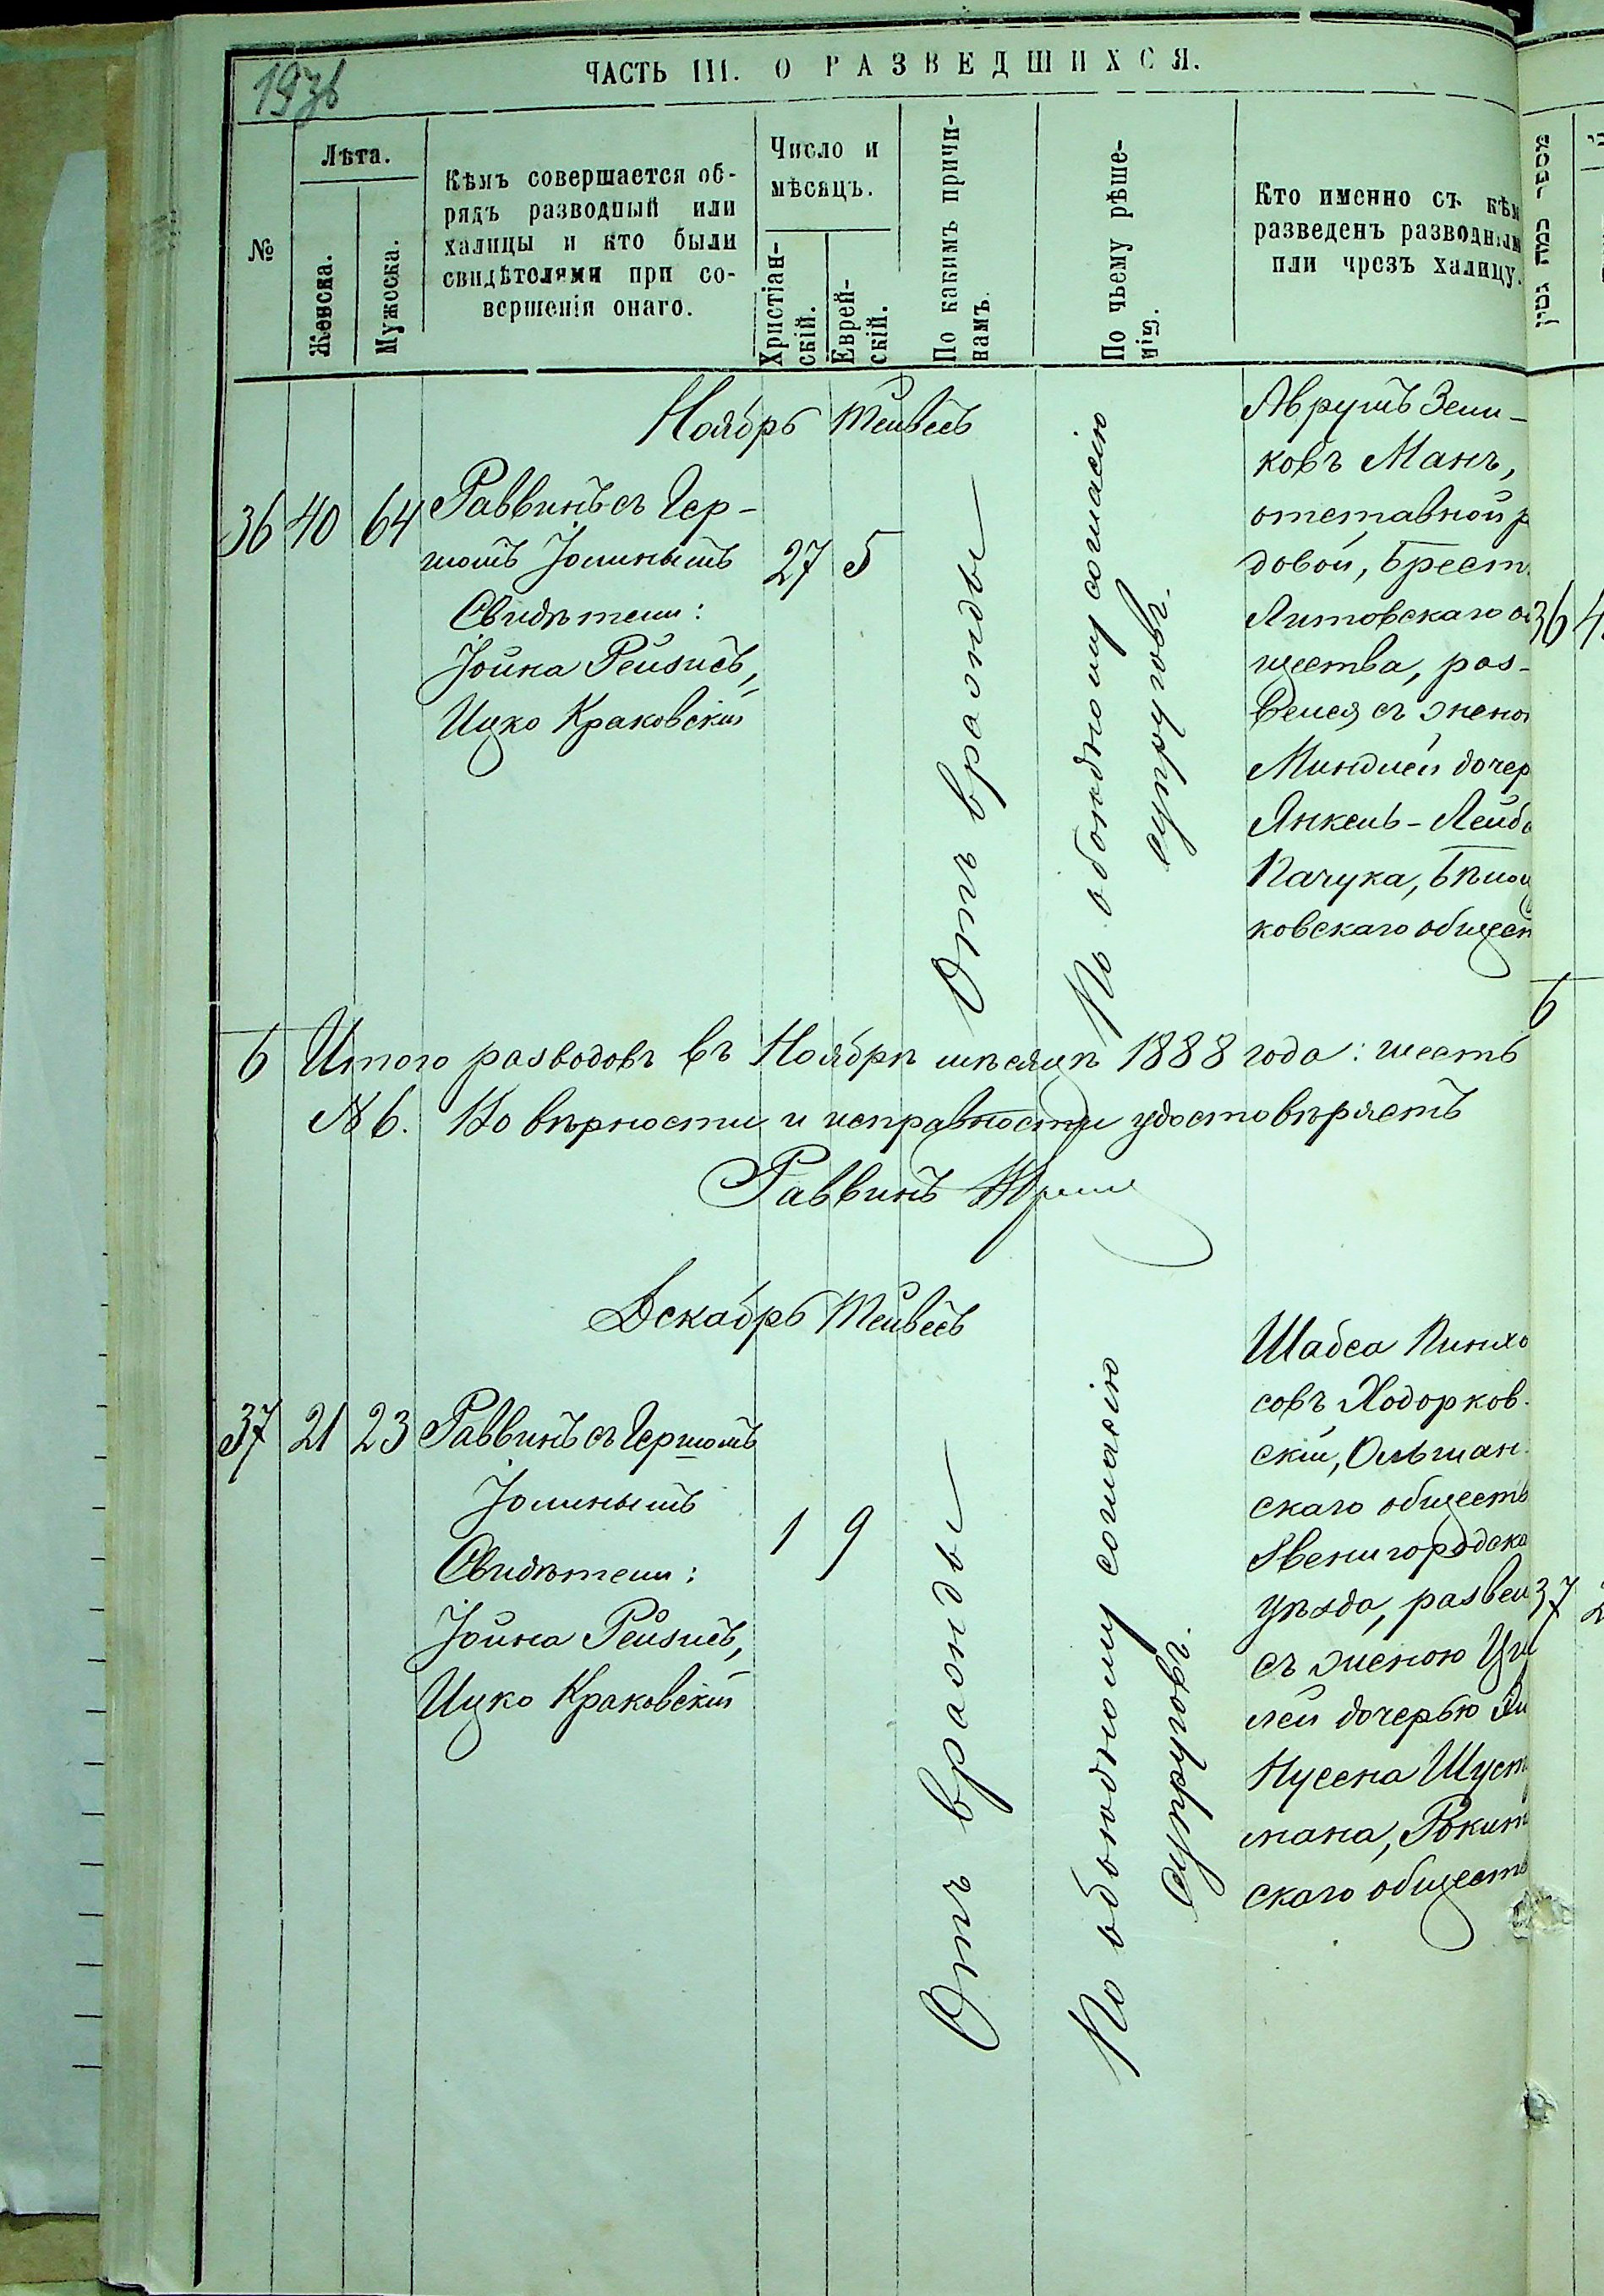 193б
ЧАСТЬ III. О РАЗВЕДШИХСЯ.
№
Лѣта.
Женска.
Мужеска.
Кѣмъ совершается об-
рядъ разводный или
халицы и кто были
свидѣтелями при со-
вершенія онаго.
Число и
мѣсяцъ.
Христіан-
скій.
Еврей-
скій.
По какимъ причи-
намъ.
По чьему рѣше-
нію.
Кто именно съ кѣм
разведенъ разводным
или чрезъ халицу.
מספר כמה גטין
Ноябрь Тейвесъ
36 40 64
Раввинъ съ Гер-
шомъ
Свидѣтели:
Іойна Рейзисъ,
Ицко Краковскій
27 5
Отъ вражды
По обоюдному согласію
супруговъ.
Аврумъ Зели-
ковъ Манъ,
отставной р
довой, Брест
Литовскаго о
щества, раз-
велся съ жено
Миндлей дочер
Янкель-Лейб
Пачука, Бѣло
ковскаго общес
36 4
6 Итого разводовъ въ Ноябрѣ мѣсяцѣ 1888 года: шесть
6
№ 6. Во вѣрности и исправности удостовѣряетъ
Раввинъ
Декабрь Тейвесъ
37 21 23
Раввинъ съ Гершомъ
Свидѣтели:
Іойна Рейзисъ,
Ицко Краковскій
1 9
Отъ вражды
По обоюдному согласію
супруговъ.
Шабса Пинхо
совъ Ходорков-
скій, Ольшан-
скаго обществ
Звенигородска
уѣзда, развел
съ женою Ци
лей дочерью
Нусена Шуст
мана, Рокит
скаго обществ
37 2